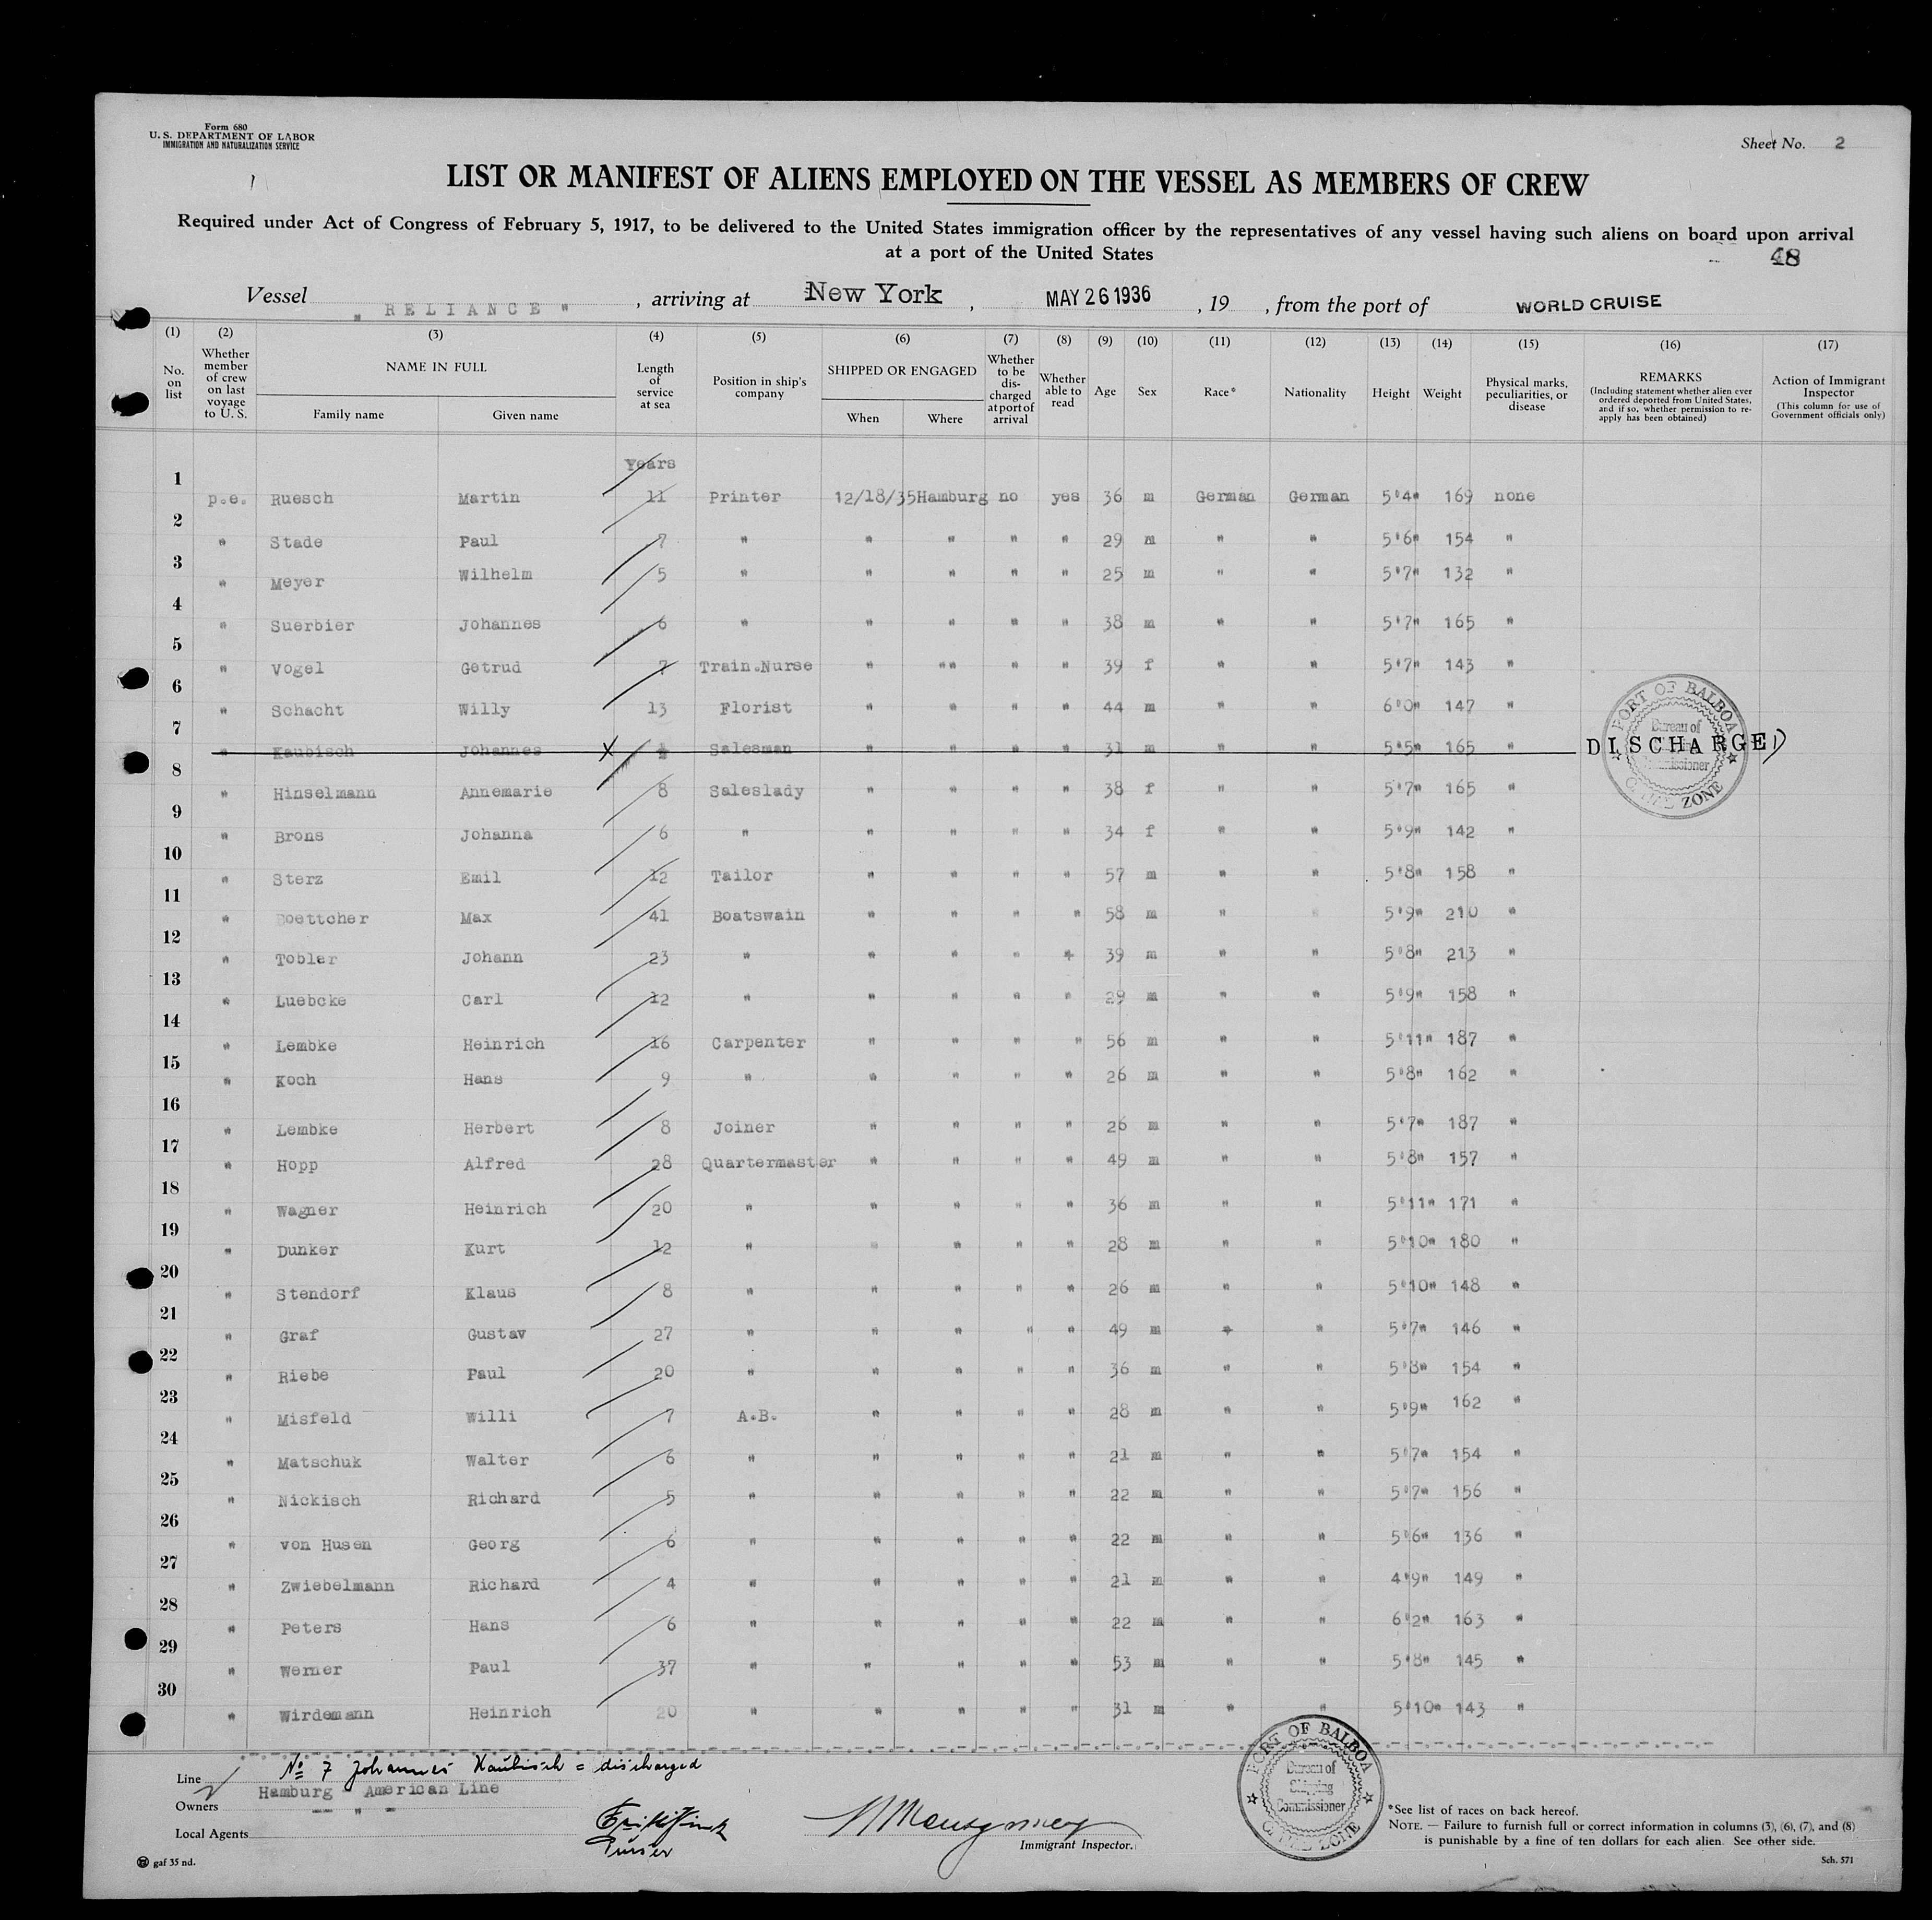 Form 680
U. S. DEPARTMENT OF LABOR
IMMIGRATION AND NATURALIZATION SERVICE
Sheet No. 2
LIST OR MANIFEST OF ALIENS EMPLOYED ON THE VESSEL AS MEMBERS OF CREW
Required under Act of Congress of February 5, 1917, to be delivered to the United States immigration officer by the representatives of any vessel having such aliens on board upon arrival
at a port of the United States
48
Vessel " RELIANCE " , arriving at New York , MAY 26 1936 , 19 , from the port of WORLD CRUISE
(1) (2) (3) (4) (5) (6) (7) (8) (9) (10) (11) (12) (13) (14) (15) (16) (17)
No. on list
Whether member of crew on last voyage to U. S.
NAME IN FULL
Family name
Given name
Length of service at sea
Position in ship's company
SHIPPED OR ENGAGED
When
Where
Whether to be discharged at port of arrival
Whether able to read
Age
Sex
Race*
Nationality
Height
Weight
Physical marks, peculiarities, or disease
REMARKS
(Including statement whether alien ever ordered deported from United States, and if so, whether permission to reapply has been obtained)
Action of Immigrant Inspector
(This column for use of Government officials only)
Years
1 p.e. Ruesch Martin 11 Printer 12/18/35 Hamburg no yes 36 m German German 5'4" 169 none
2 " Stade Paul 7 " " " " " 29 m " " 5'6" 154 "
3 " Meyer Wilhelm 5 " " " " " 25 m " " 5'7" 132 "
4 " Suerbier Johannes 6 " " " " " 38 m " " 5'7" 165 "
5 " Vogel Getrud 7 Train.Nurse " "" " " 39 f " " 5'7" 143 "
6 " Schacht Willy 13 Florist " " " " 44 m " " 6'0" 147 "
7 " Kaubisch Johannes X Salesman " " " " 31 m " " 5'5" 165 " DISCHARGED
8 " Hinselmann Annemarie 8 Saleslady " " " " 38 f " " 5'7" 165 "
9 " Brons Johanna 6 " " " " " 34 f " " 5'9" 142 "
10 " Sterz Emil 12 Tailor " " " " 57 m " " 5'8" 158 "
11 " Boettcher Max 41 Boatswain " " " " 58 m " " 5'9" 210 "
12 " Tobler Johann 23 " " " " " 39 m " " 5'8" 213 "
13 " Luebcke Carl 12 " " " " " 29 m " " 5'9" 158 "
14 " Lembke Heinrich 16 Carpenter " " " " 56 m " " 5'11" 187 "
15 " Koch Hans 9 " " " " " 26 m " " 5'8" 162 "
16 " Lembke Herbert 8 Joiner " " " " 26 m " " 5'7" 187 "
17 " Hopp Alfred 28 Quartermaster " " " " 49 m " " 5'8" 157 "
18 " Wagner Heinrich 20 " " " " " 36 m " " 5'11" 171 "
19 " Dunker Kurt 12 " " " " " 28 m " " 5'10" 180 "
20 " Stendorf Klaus 8 " " " " " 26 m " " 5'10" 148 "
21 " Graf Gustav 27 " " " " " 49 m " " 5'7" 146 "
22 " Riebe Paul 20 " " " " " 36 m " " 5'8" 154 "
23 " Misfeld Willi 7 A.B. " " " " 28 m " " 5'9" 162 "
24 " Matschuk Walter 6 " " " " " 21 m " " 5'7" 154 "
25 " Nickisch Richard 5 " " " " " 22 m " " 5'7" 156 "
26 " von Husen Georg 6 " " " " " 22 m " " 5'6" 136 "
27 " Zwiebelmann Richard 4 " " " " " 21 m " " 4'9" 149 "
28 " Peters Hans 6 " " " " " 22 m " " 6'2" 163 "
29 " Werner Paul 37 " " " " " 53 m " " 5'8" 145 "
30 " Wirdemann Heinrich 20 " " " " " 31 m " " 5'10" 143 "
PORT OF BALBOA
Bureau of
Commissioner
ZONE
No 7 Johannes Kaubisch = discharged
Line Hamburg - American Line
Owners — " —
Local Agents
Purser
Montgomery
Immigrant Inspector.
PORT OF BALBOA
Bureau of
Shipping
Commissioner
ZONE
*See list of races on back hereof.
NOTE. — Failure to furnish full or correct information in columns (3), (6), (7), and (8)
is punishable by a fine of ten dollars for each alien. See other side.
gaf 35 nd.
Sch. 571